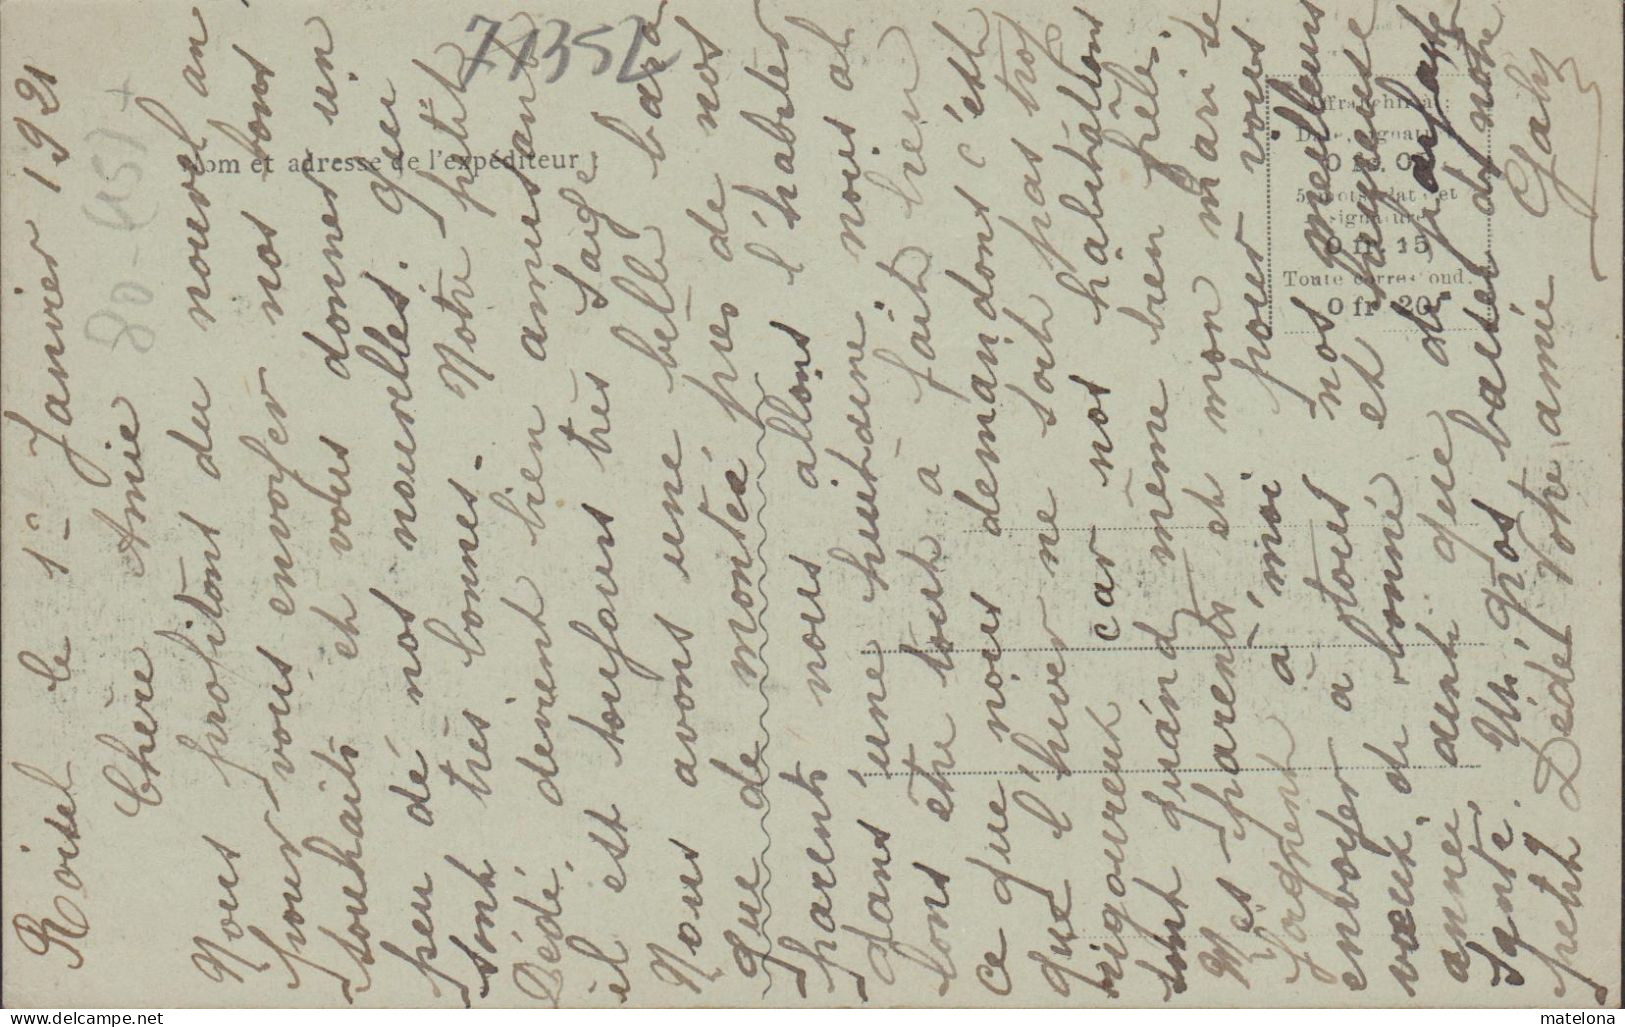 Roisel le 1er Janvier 1921
Chère Amie
Nous profitons du nouvel an
pour vous envoyer nos bons
souhaits et vous donner un
peu de nos nouvelles. qui
sont très bonnes. Notre petit
Dédé, devient bien amusant
il est toujours très sage
Nous avons une belle bara
que de montée près de nos
parents nous allons l'habiter
dans une huitaine nous al
lons être tout à fait bien
ce que nous demandons c'est
que l'hiver ne soit pas trop
rigoureux car nos habitations
sont quand même bien frêles.
Mes parents et mon mari se
joignent à moi pour vous
envoyer a tous nos meilleurs
vœux de bonne et heureuse
année ainsi que de parfaite
santé. Un gros baiser de notre
petit Dédé Votre amie Gaby
71352
80-(45) +
Nom et adresse de l'expéditeur :
Affranchir à :
Date, signature
0 fr. 0
5 mots, date et
signature
0 fr. 15
Toute correspond.
0 fr 20
© delcampe.net
matelona